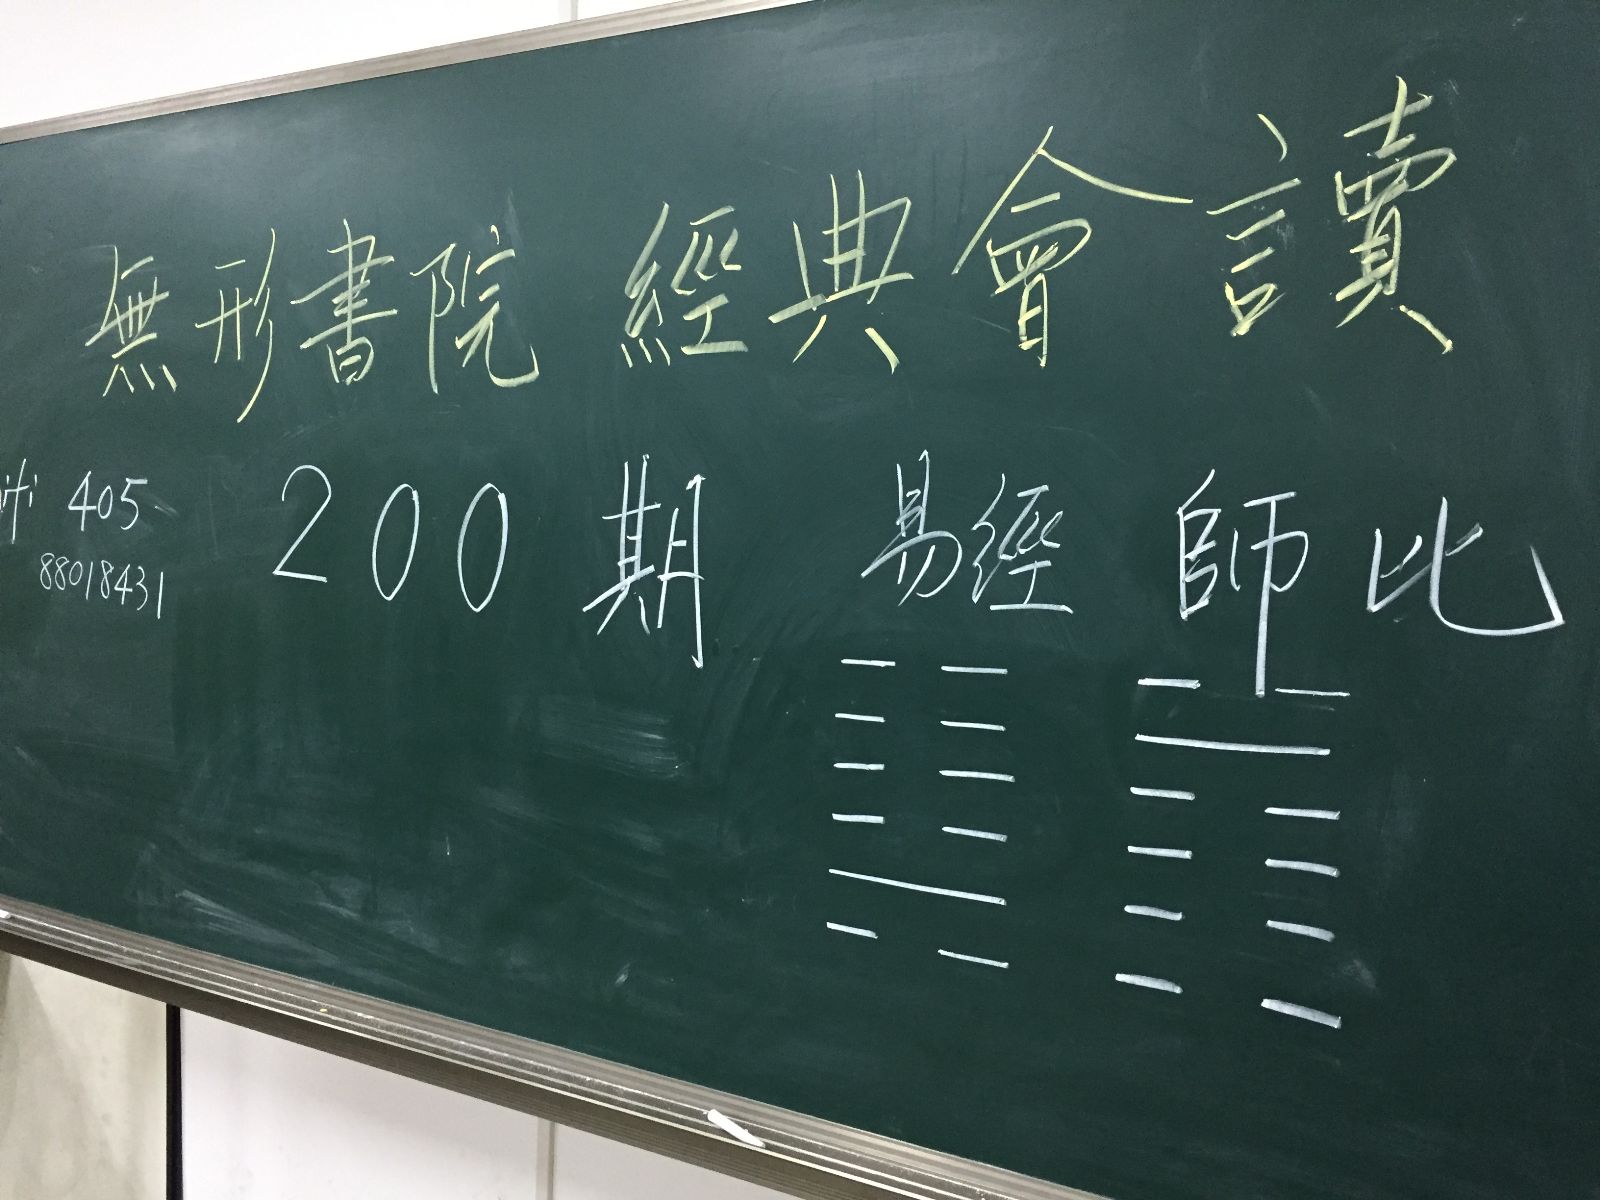 無形書院 經典會讀
405 200期 易經 師 比
88018431